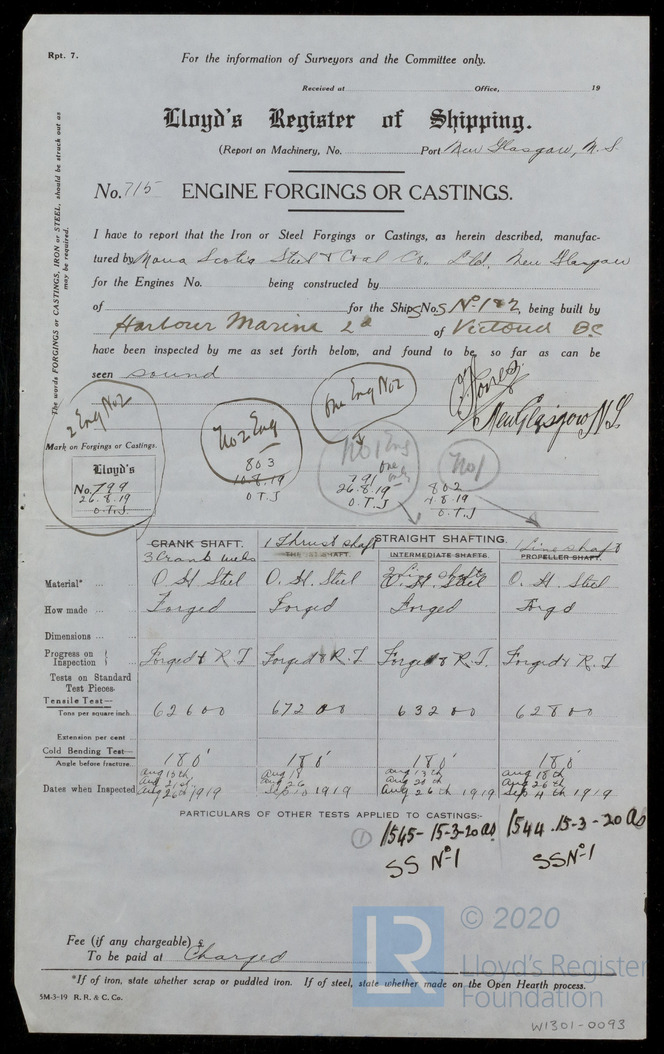 Rpt. 7.
For the information of Surveyors and the Committee only.
Received at Office, 19
Lloyd's Register of Shipping.
(Report on Machinery, No. Port New Glasgow, N.S.
No. 715 ENGINE FORGINGS OR CASTINGS.
The words FORGINGS or CASTINGS, IRON or STEEL, should be struck out as may be required.
I have to report that the Iron or Steel Forgings or Castings, as herein described, manufac-
tured by Nova Scotia Steel & Coal Co. Ltd. New Glasgow
for the Engines No. being constructed by
of for the Ships Nos No 1 & 2, being built by
Harbour Marine of Victoria BC
have been inspected by me as set forth below, and found to be, so far as can be
seen sound
O.T. Jones
New Glasgow N.S.
2 Eng No2
No 2 Eng
803
10.8.19
O.T.J
one Eng No2
No 1 Eng
one only
791
26.8.19
O.T.J
No 1
802
4.8.19
O.T.J
Mark on Forgings or Castings.
Lloyd's
No. 799
26.8.19
O.T.J.
CRANK SHAFT.
3 Crank webs
1 Thrust shaft
THRUST SHAFT.
STRAIGHT SHAFTING.
INTERMEDIATE SHAFTS.
2 Line shafts
1 Line shaft
PROPELLER SHAFT.
Material* O.H. Steel O.H. Steel O.H. Steel O.H. Steel
How made Forged Forged Forged Forgd
Dimensions
Progress on Inspection Forged & R.T Forged & R.T Forged & R.T. Forged & R.T
Tests on Standard Test Pieces.
Tensile Test—
Tons per square inch 62600 67200 63200 62800
Extension per cent
Cold Bending Test—
Angle before fracture 180° 180° 180° 180°
Aug 13th Aug 18 Aug 13th Aug 18th
Aug 21st Aug 26 Aug 20th Aug 26th
Dates when Inspected Aug 26th 1919 Sep 10 1919 Aug 26th 1919 Sep 4th 1919
PARTICULARS OF OTHER TESTS APPLIED TO CASTINGS:-
1 1545-15-3-20 as 1544.15-3-20 as
SS No 1 SS No 1
Fee (if any chargeable) $
To be paid at Charged
*If of iron, state whether scrap or puddled iron. If of steel, state whether made on the Open Hearth process.
5M-3-19 R. R. & C. Co.
LR © 2020
Lloyd's Register
Foundation
W1301-0093